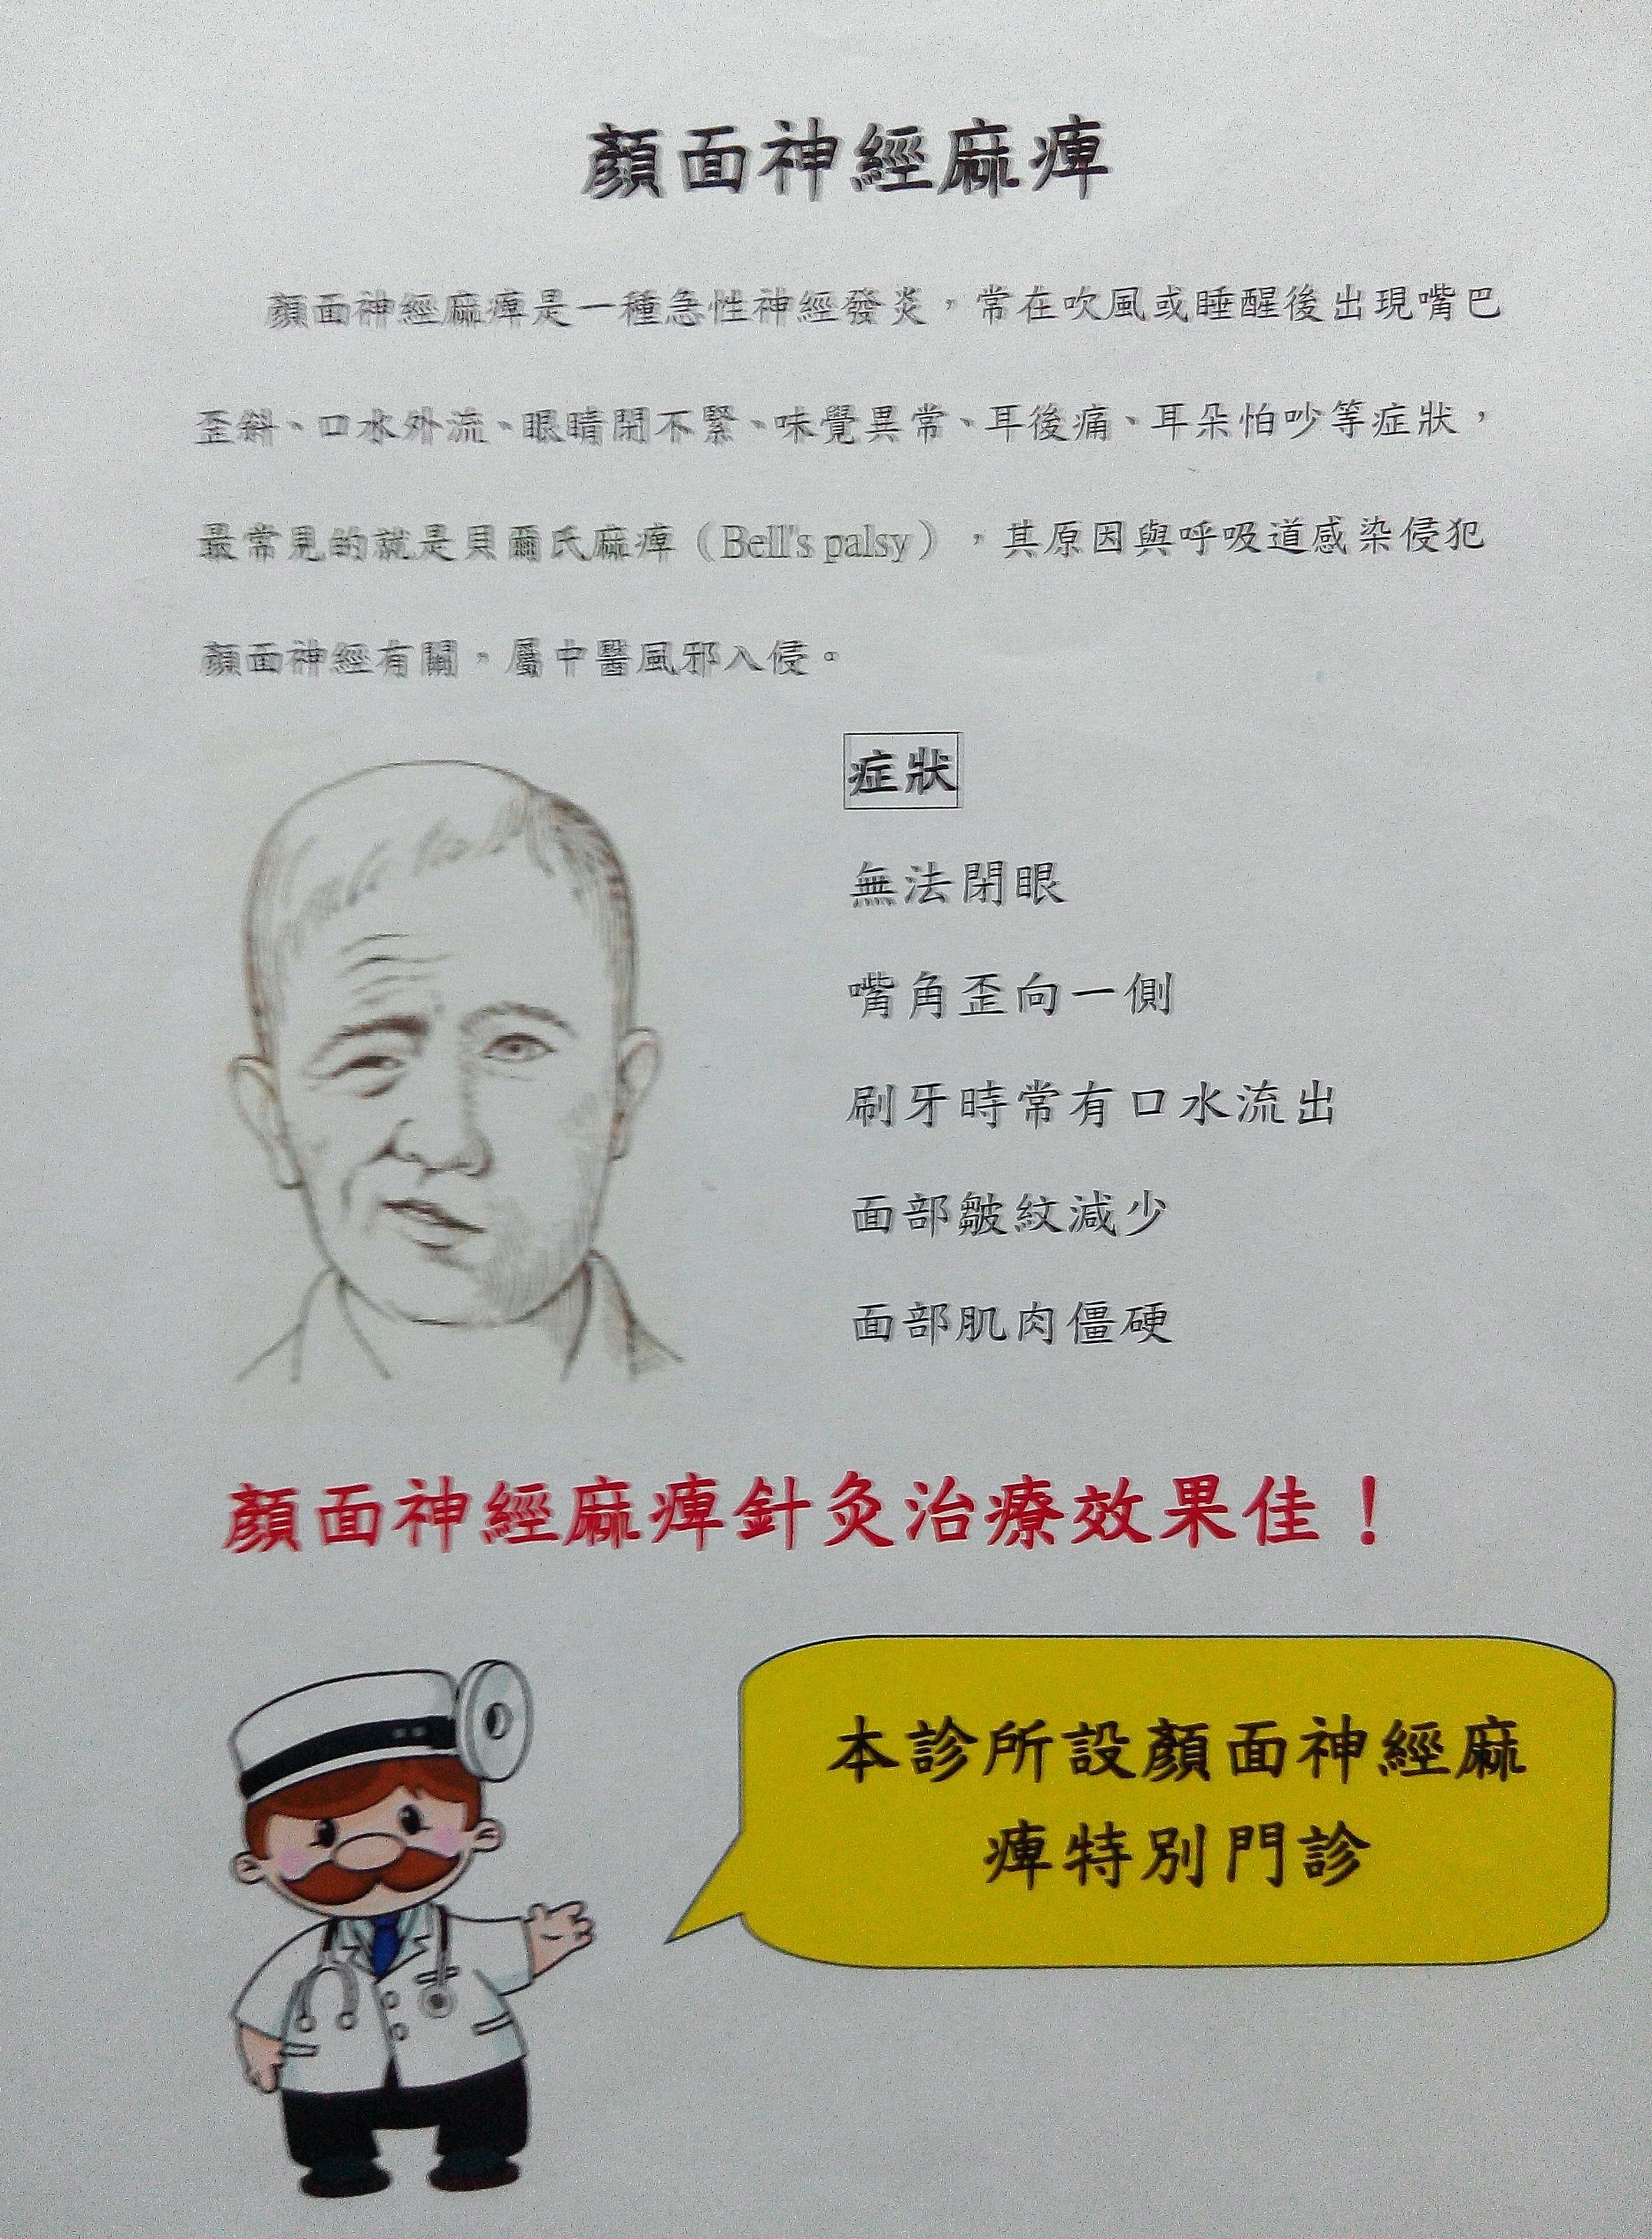 顏面神經麻痺
顏面神經麻痺是一種急性神經發炎，常在吹風或睡醒後出現嘴巴
歪斜、口水外流、眼睛閉不緊、味覺異常、耳後痛、耳朵怕吵等症狀，
最常見的就是貝爾氏麻痺（Bell's palsy），其原因與呼吸道感染侵犯
顏面神經有關，屬中醫風邪入侵。
症狀
無法閉眼
嘴角歪向一側
刷牙時常有口水流出
面部皺紋減少
面部肌肉僵硬
顏面神經麻痺針灸治療效果佳！
本診所設顏面神經麻
痺特別門診